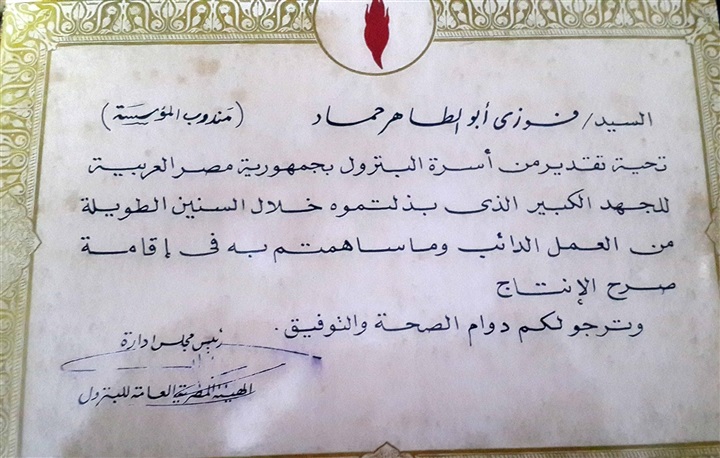 السيد/ فوزى أبو الطاهر حماد (مندوب المؤسسة)
تحية تقدير من أسرة البترول بجمهورية مصر العربية
للجهد الكبير الذى بذلتموه خلال السنين الطويلة
من العمل الدائب وما ساهمتم به فى إقامة
صرح الإنتاج
وترجو لكم دوام الصحة والتوفيق.
رئيس مجلس ادارة
الهيئة المصرية العامة للبترول